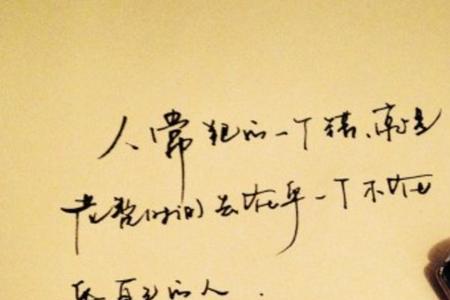 人常犯的一个错，就是
花整时间去在乎一个不在
乎自己的人.